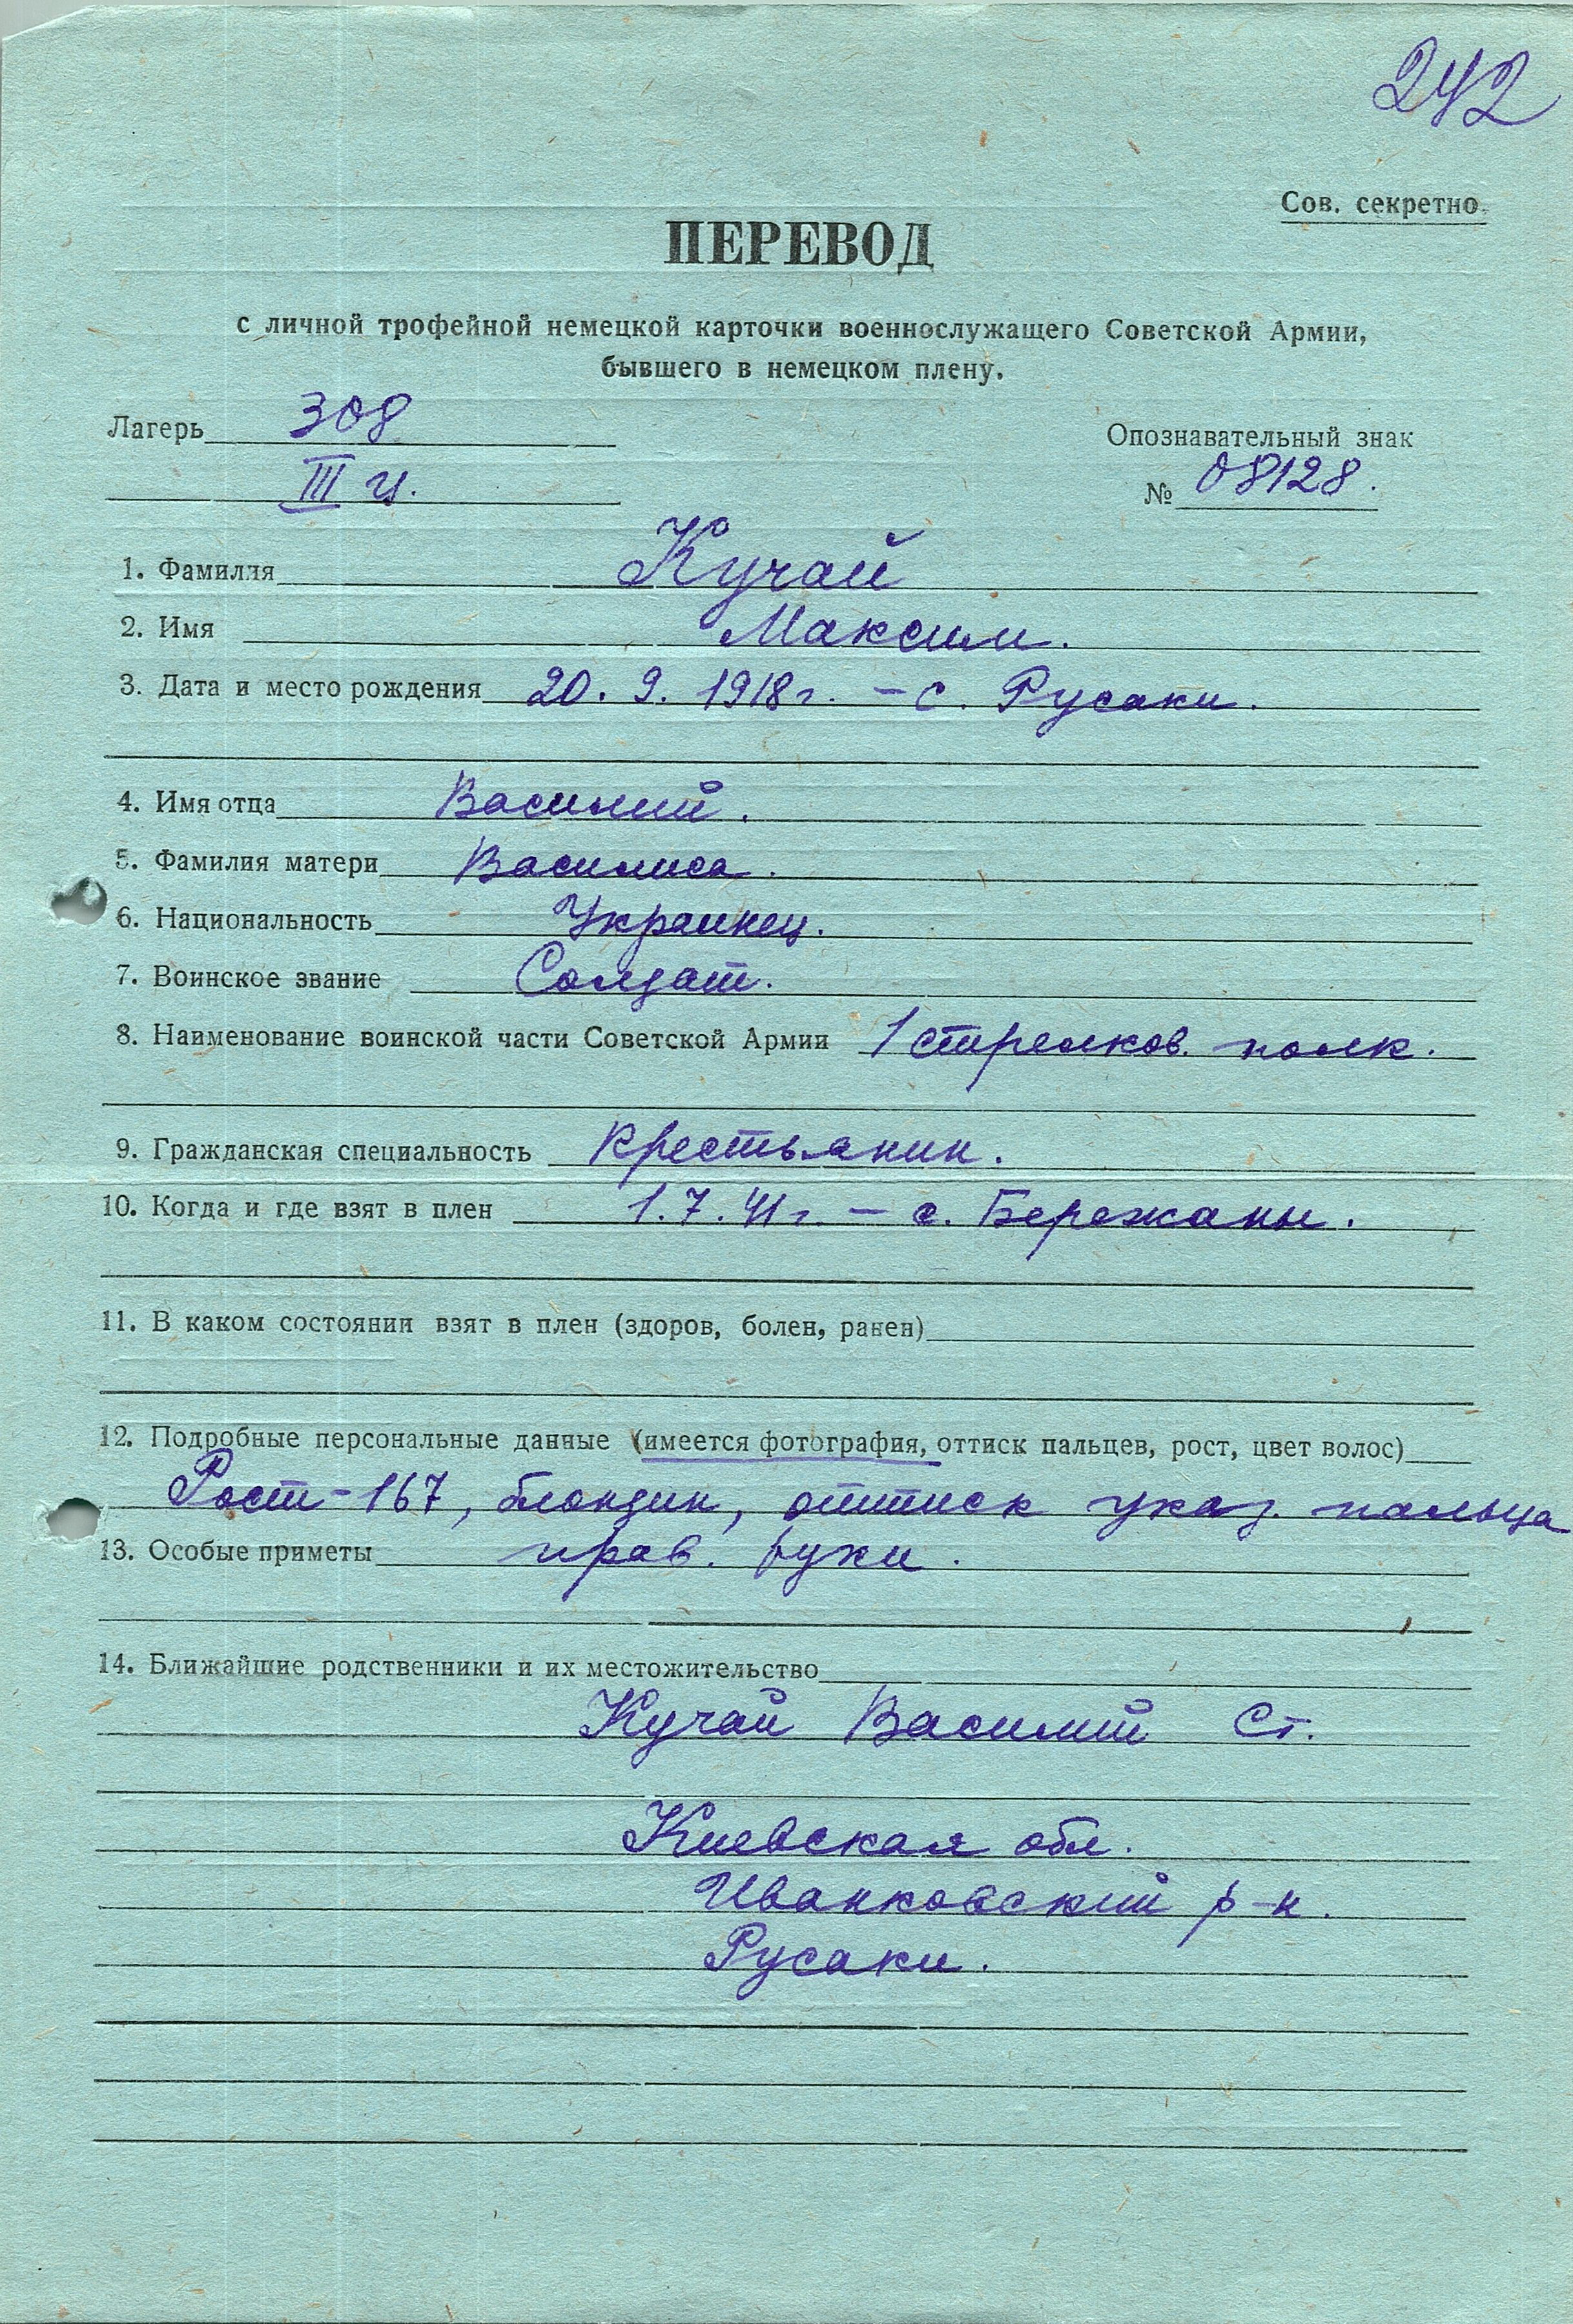 242
Сов. секретно.
ПЕРЕВОД
с личной трофейной немецкой карточки военнослужащего Советской Армии,
бывшего в немецком плену.
Лагерь 308 Опознавательный знак
III ц. № 08128.
1. Фамилия Кучай
2. Имя Максим.
3. Дата и место рождения 20. 9. 1918 г. – с. Русаки.
4. Имя отца Василий.
5. Фамилия матери Василиса.
6. Национальность Украинец.
7. Воинское звание Солдат.
8. Наименование воинской части Советской Армии 1 стрелков. полк.
9. Гражданская специальность крестьянин.
10. Когда и где взят в плен 1. 7. 41 г. – с. Бережаны.
11. В каком состоянии взят в плен (здоров, болен, ранен)
12. Подробные персональные данные (имеется фотография, оттиск пальцев, рост, цвет волос)
Рост – 167, блондин, оттиск указ. пальца
13. Особые приметы прав. руки.
14. Ближайшие родственники и их местожительство
Кучай Василий Ст.
Киевская обл.
Иванковский р-н.
Русаки.